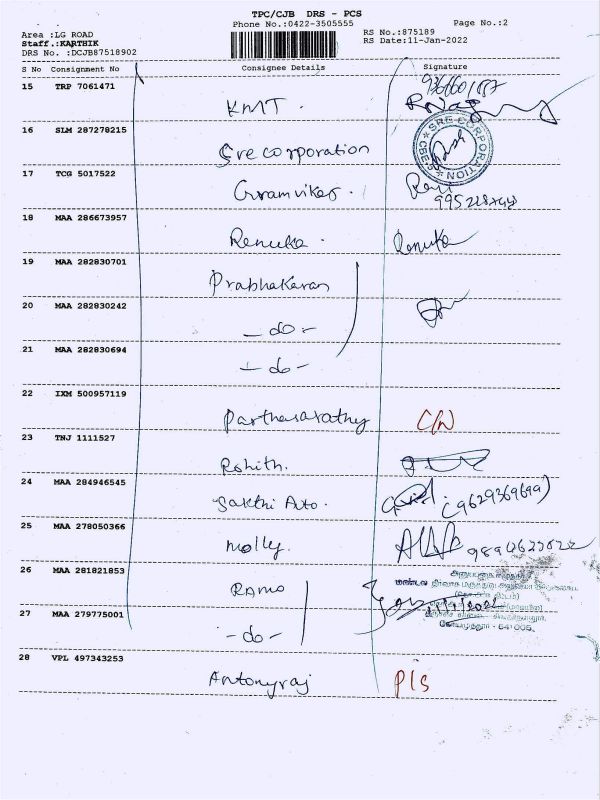 TPC/CJB DRS - PCS
Phone No.:0422-3505555
Page No.:2
Area :LG ROAD
RS No.:875189
Staff.:KARTHIK
RS Date:11-Jan-2022
DRS No. :DCJB87518902
S No Consignment No Consignee Details Signature
15 TRP 7061471
KMT.
16 SLM 287278215
Sre corporation
SRE CORPORATION
CBE-5
17 TCG 5017522
Gramvikes.
Ravi
18 MAA 286673957
Renuka. Renuka
19 MAA 282830701
Prabhakaran
20 MAA 282830242
- do -
21 MAA 282830694
- do -
22 IXM 500957119
Parthasarathy C/N
23 TNJ 1111527
Rohith.
24 MAA 284946545
Sakthi Auto. (9629369699)
25 MAA 278050366
Molly.
26 MAA 281821853
Ramo
27 MAA 279775001
- do -
கோயமுத்தூர் - 641005.
28 VPL 497343253
Antonyraj P/s